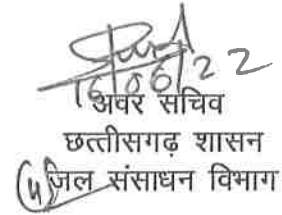 16/06/22
अवर सचिव
छत्तीसगढ़ शासन
(4) जल संसाधन विभाग